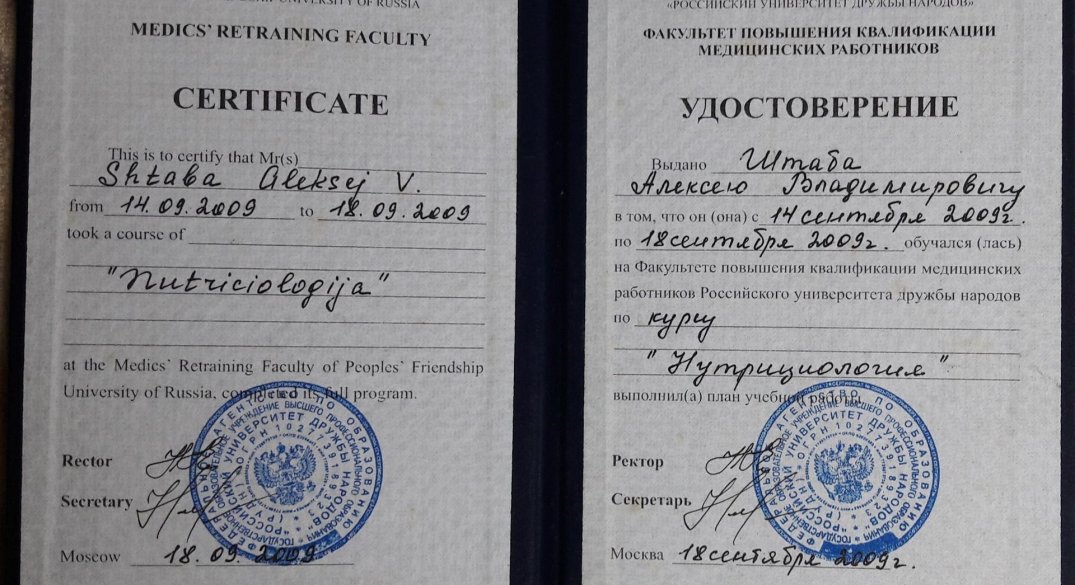 UNIVERSITY OF RUSSIA
MEDICS' RETRAINING FACULTY
CERTIFICATE
This is to certify that Mr(s)
Shtaba Aleksej V.
from 14.09.2009 to 18.09.2009
took a course of
"Nutriciologija"
at the Medics' Retraining Faculty of Peoples' Friendship
University of Russia, completed its full program.
Rector
Secretary
Moscow 18.09.2009
«РОССИЙСКИЙ УНИВЕРСИТЕТ ДРУЖБЫ НАРОДОВ»
ФАКУЛЬТЕТ ПОВЫШЕНИЯ КВАЛИФИКАЦИИ
МЕДИЦИНСКИХ РАБОТНИКОВ
УДОСТОВЕРЕНИЕ
Выдано Штаба
Алексею Владимировичу
в том, что он (она) с 14 сентября 2009г.
по 18 сентября 2009г. обучался (лась)
на Факультете повышения квалификации медицинских
работников Российского университета дружбы народов
по курсу
"Нутрициология"
выполнил(а) план учебной работы.
Ректор
Секретарь
Москва 18 сентября 2009г.